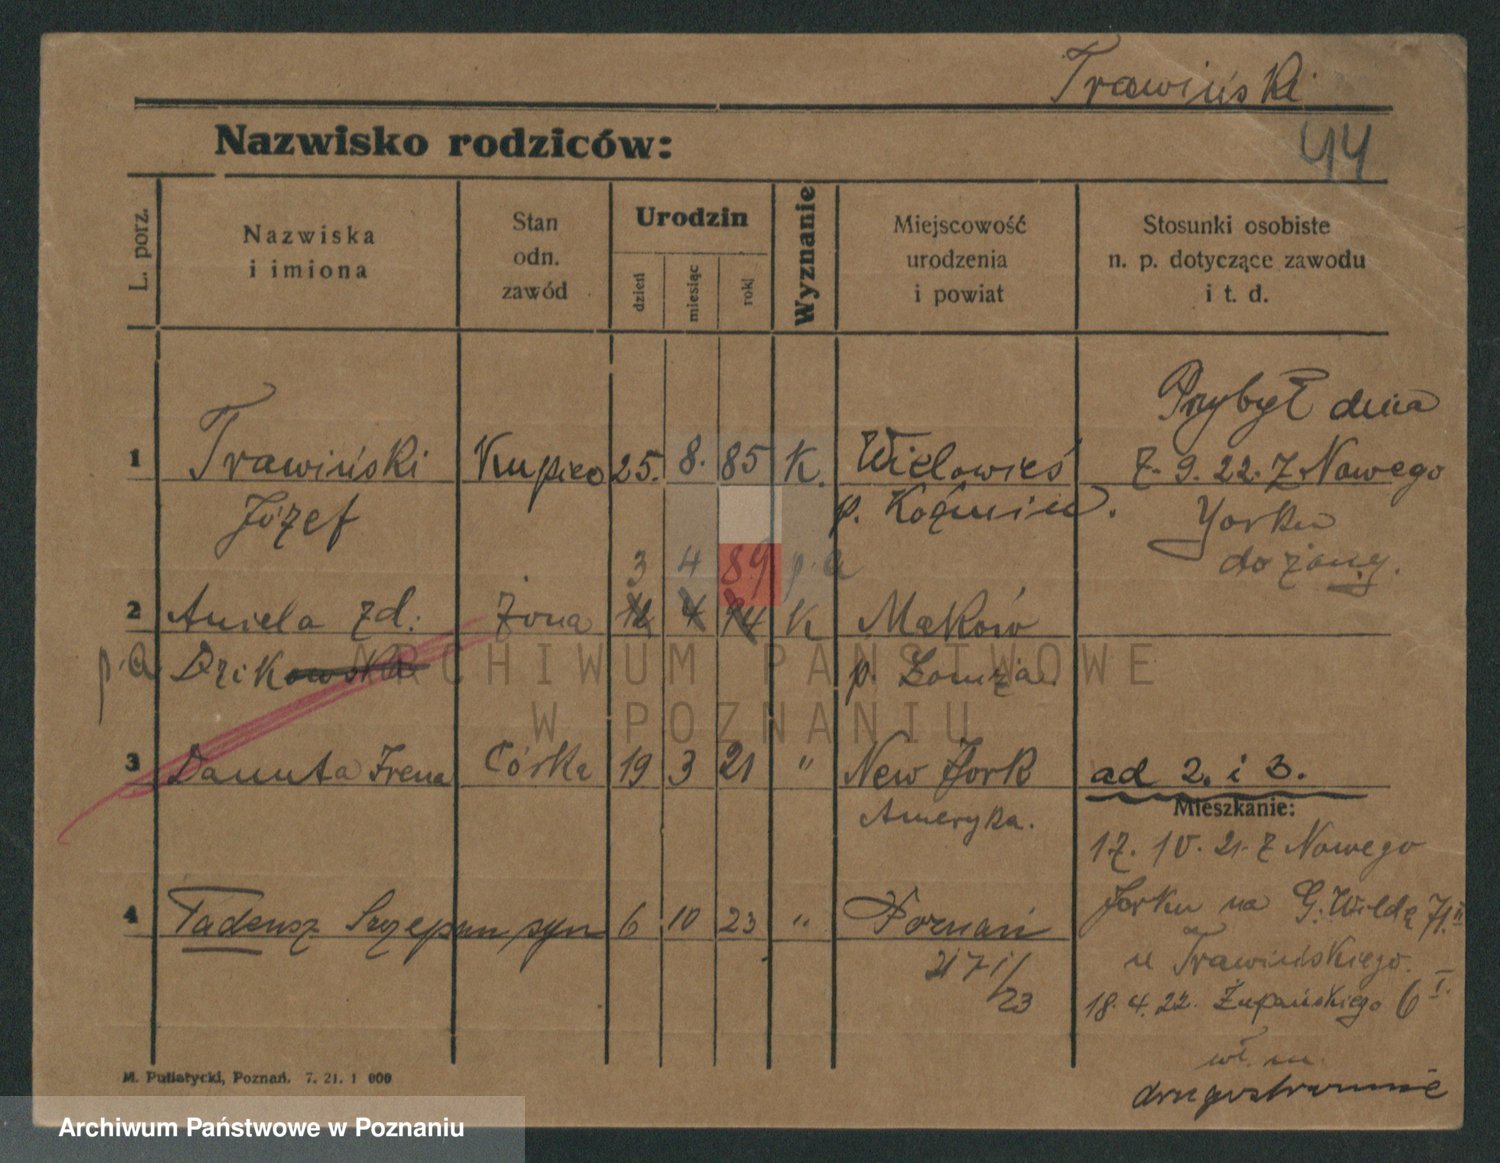 Trawiński
Nazwisko rodziców:
44
L. porz.
Nazwiska
i imiona
Stan
odn.
zawód
Urodzin
dzień
miesiąc
rok
Wyznanie
Miejscowość
urodzenia
i powiat
Stosunki osobiste
n. p. dotyczące zawodu
i t. d.
Przybył dnia
1 Trawiński Kupiec 25. 8. 85 K. Wielowieś 7. 9. 22. z Nowego
Józef p. Koźmin. Yorku
3 4 89 p. a do żony.
2 Aniela zd: żona 4 K Maków
p. a Dzikowska p. Łomża
ARCHIWUM PAŃSTWOWE
W POZNANIU
3 Danuta Irena Córka 19 3 21 " New Jork ad 2. i 3.
Mieszkanie:
Ameryka.
17. 10. 21. z Nowego
4 Tadeusz Szczepan syn 6 10 23 " Poznań Jorku na G. Wildę 71 II
u Trawińskiego.
23
18. 4. 22. Żupańskiego 6 I.
wł. m.
drugostronnie
M. Putiatycki, Poznań. 7. 21. 1 000
Archiwum Państwowe w Poznaniu